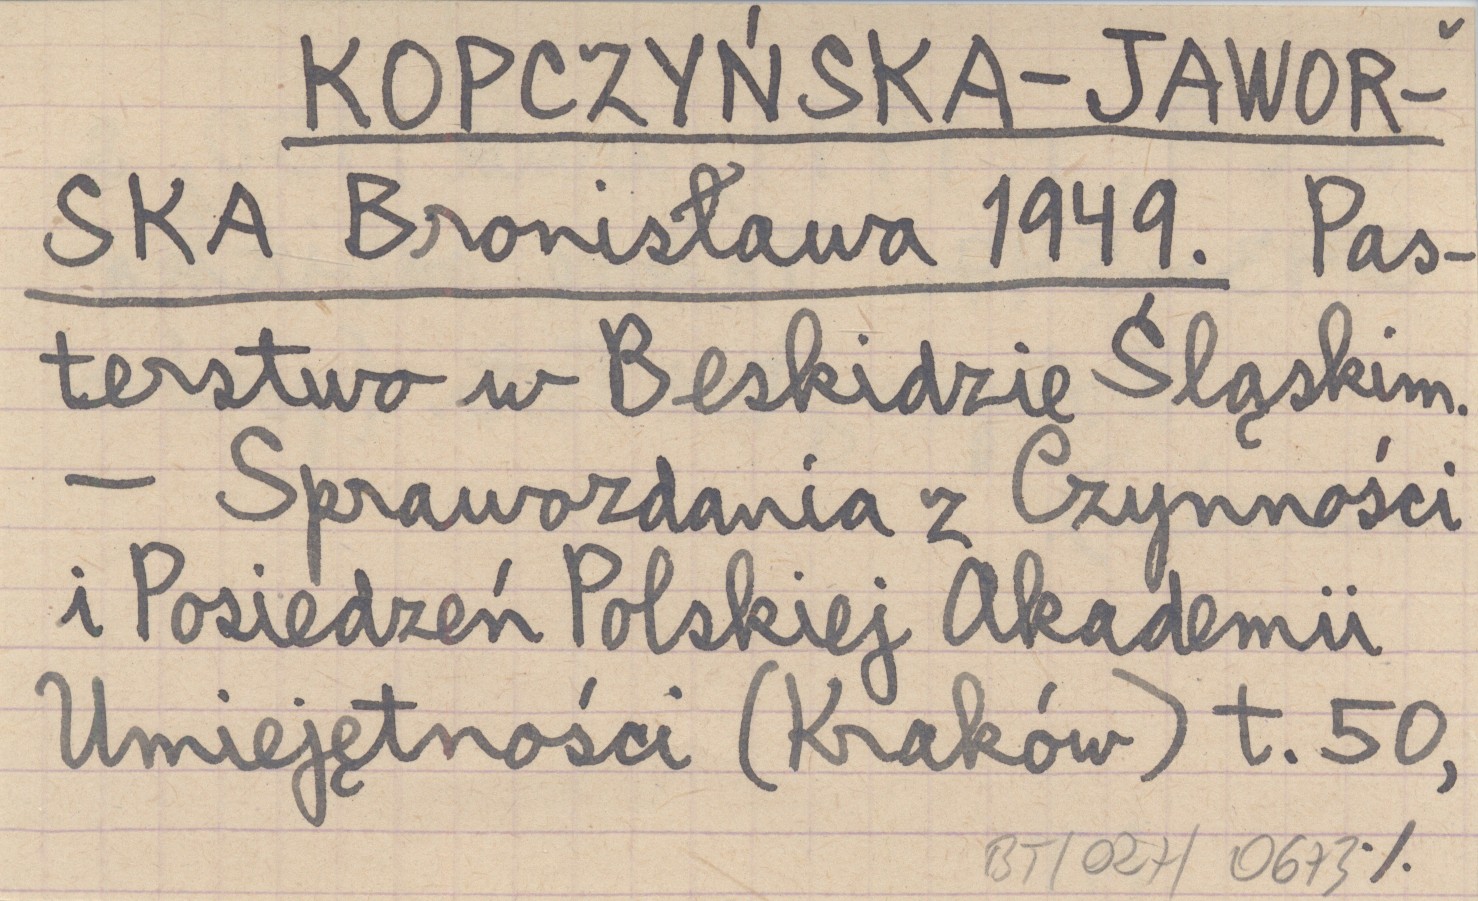 KOPCZYŃSKA-JAWOR-
SKA Bronisława 1949. Pas-
terstwo w Beskidzie Śląskim.
— Sprawozdania z Czynności
i Posiedzeń Polskiej Akademii
Umiejętności (Kraków) t. 50,
BT/027/ 0673 ·/.